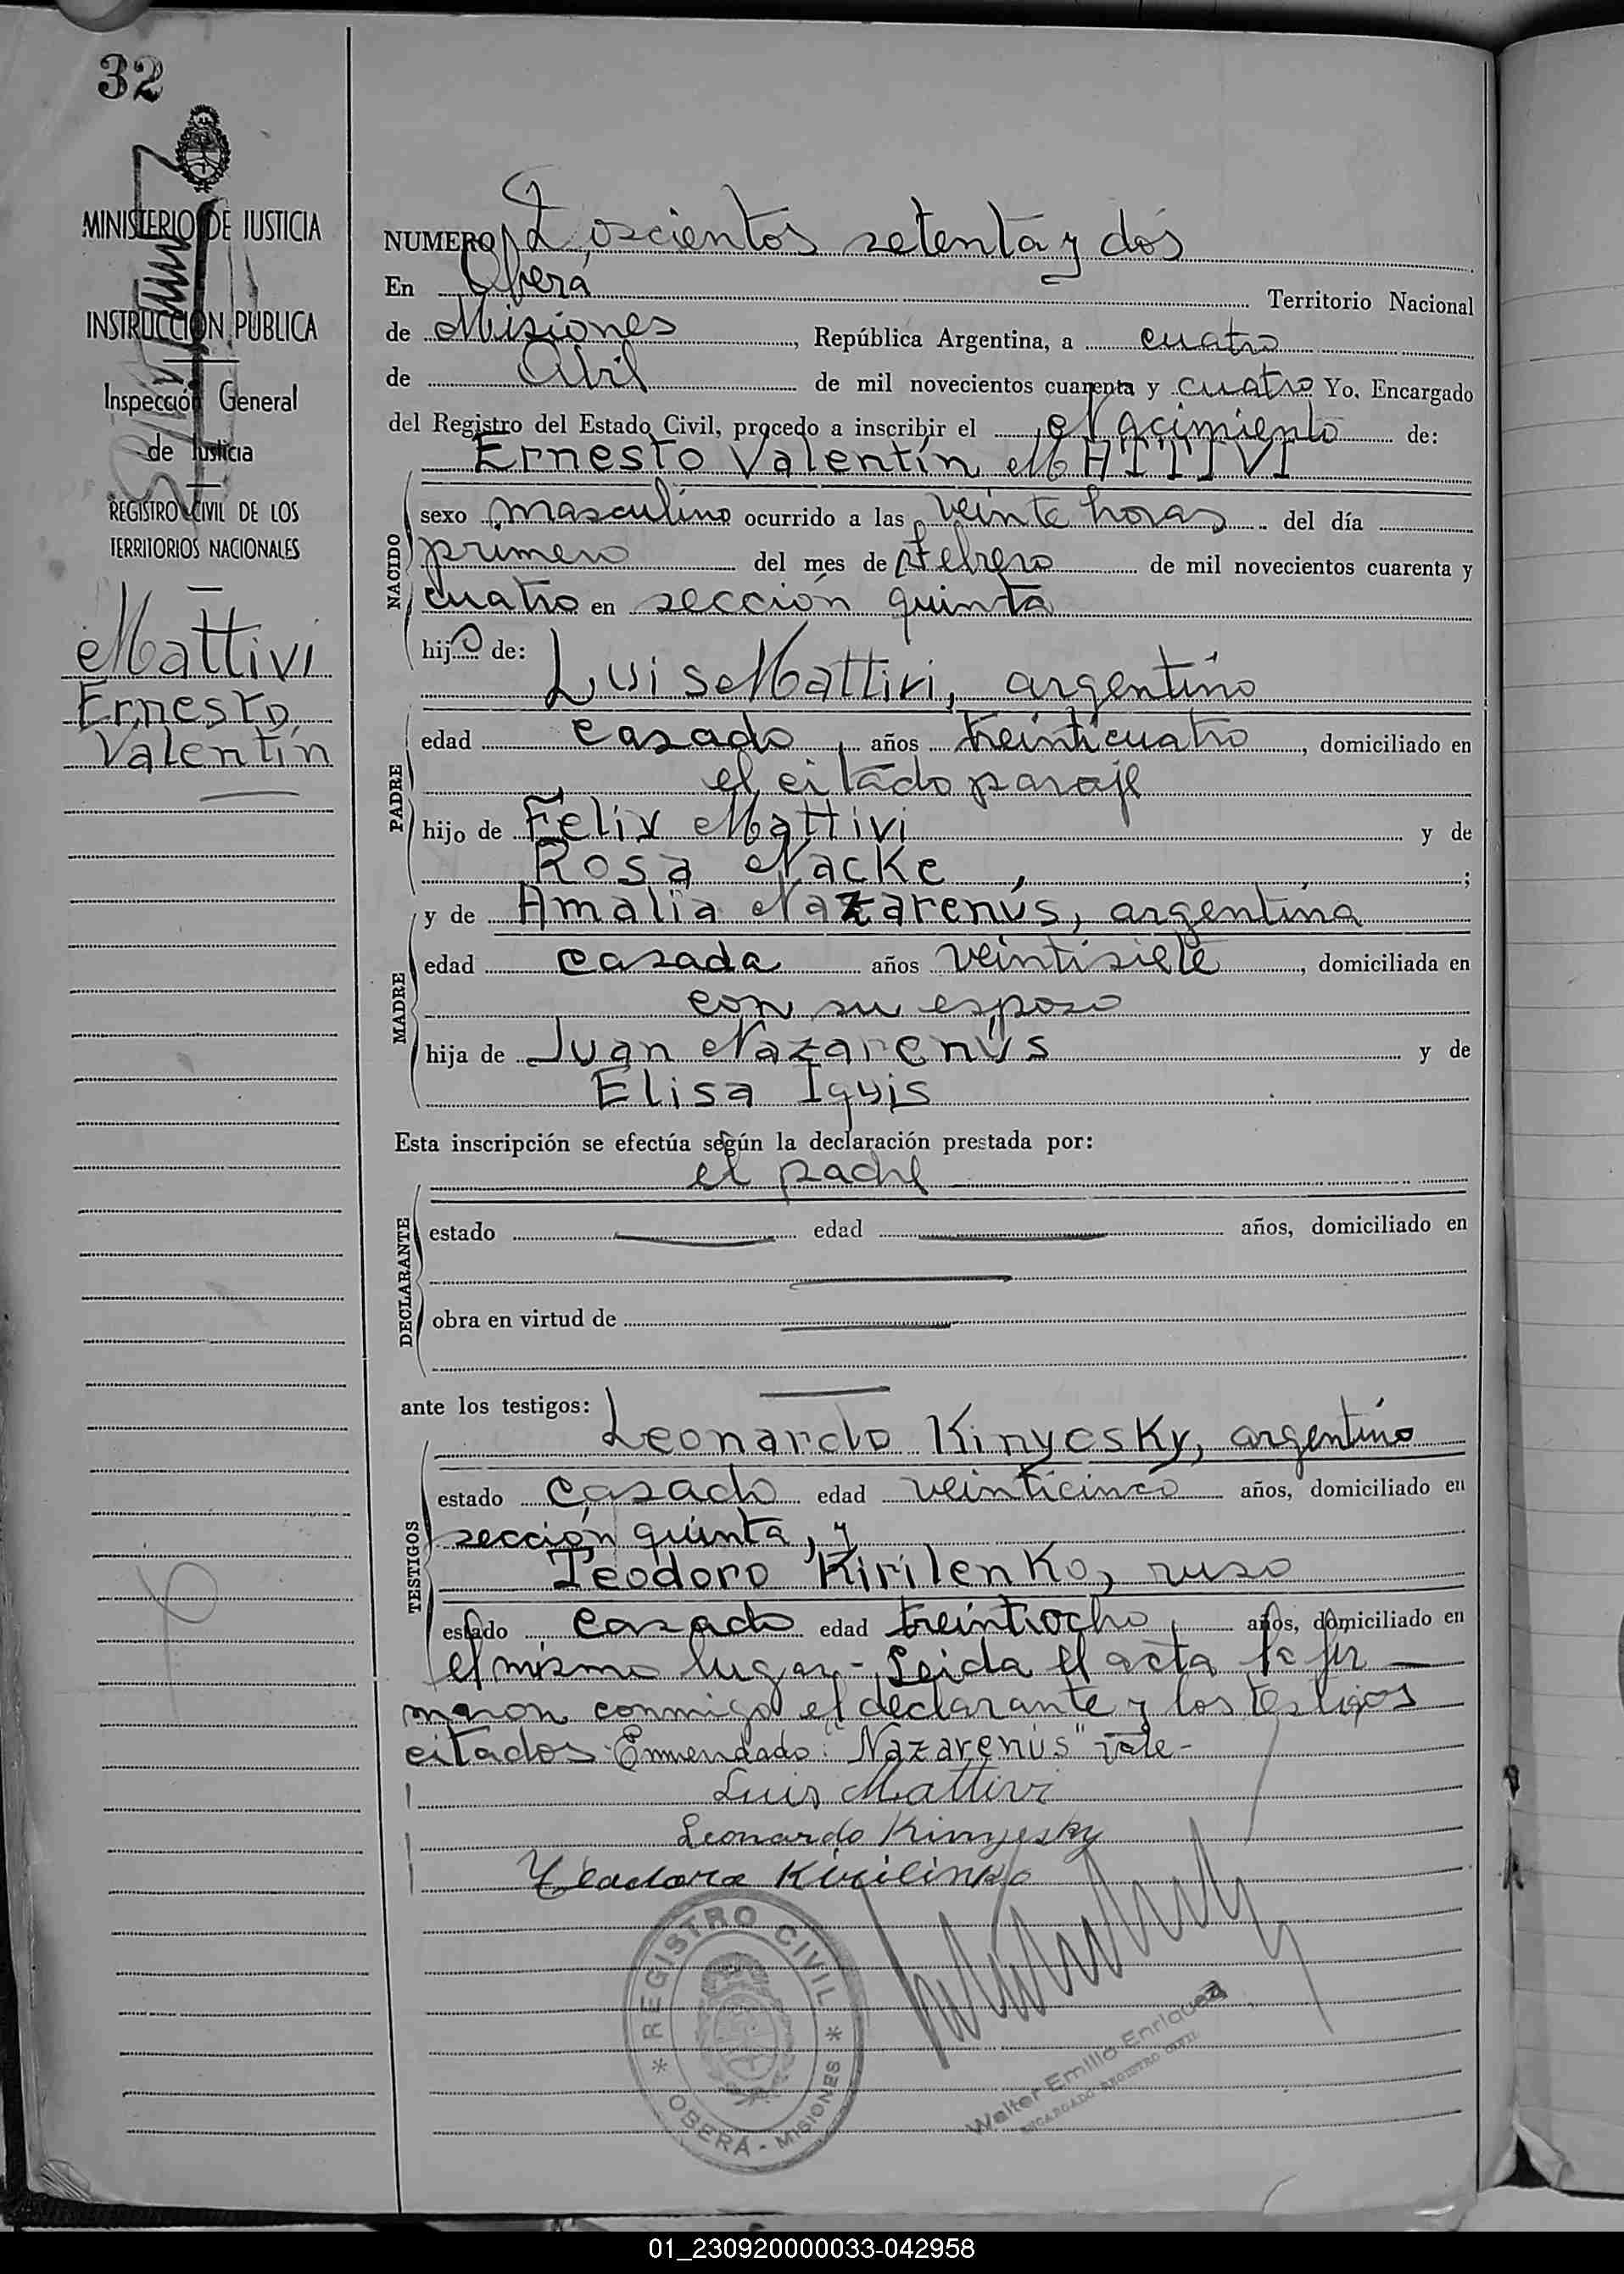 32
MINISTERIO DE JUSTICIA
INSTRUCCIÓN PUBLICA
Inspección General
de Justicia
REGISTRO CIVIL DE LOS
TERRITORIOS NACIONALES
Mattivi
Ernesto
Valentín
NUMERO Doscientos setenta y dos
En Oberá Territorio Nacional
de Misiones, República Argentina, a cuatro
de Abril de mil novecientos cuarenta y cuatro Yo, Encargado
del Registro del Estado Civil, procedo a inscribir el el nacimiento de:
Ernesto Valentín MATTIVI
NACIDO
sexo masculino ocurrido a las veinte horas del día
primero del mes de Febrero de mil novecientos cuarenta y
cuatro en sección quinta
hijo de:
Luis Mattivi, argentino
PADRE
edad casado, años treinticuatro, domiciliado en
el citado paraje
hijo de Félix Mattivi y de
Rosa Nacke, ;
MADRE
y de Amalia Nazarenus, argentina
edad casada años veintisiete, domiciliada en
con su esposo
hija de Juan Nazarenús y de
Elisa Iguis
Esta inscripción se efectúa según la declaración prestada por:
el padre
DECLARANTE
estado edad años, domiciliado en
obra en virtud de
ante los testigos:
TESTIGOS
Leonardo Kinyesky, argentino
estado casado edad veinticinco años, domiciliado en
sección quinta, y
Teodoro Kirilenko, ruso
estado casado edad treintiocho años, domiciliado en
el mismo lugar.- Leida el acta la fir-
maron conmigo el declarante y los testigos
citados. Enmendado: "Nazarenús" vale-
Luis Mattivi
Leonardo Kinyesky
Kirilinko
REGISTRO CIVIL
OBERÁ - MISIONES
Walter Emilio Enriquez
ENCARGADO REGISTRO CIVIL
01_230920000033-042958